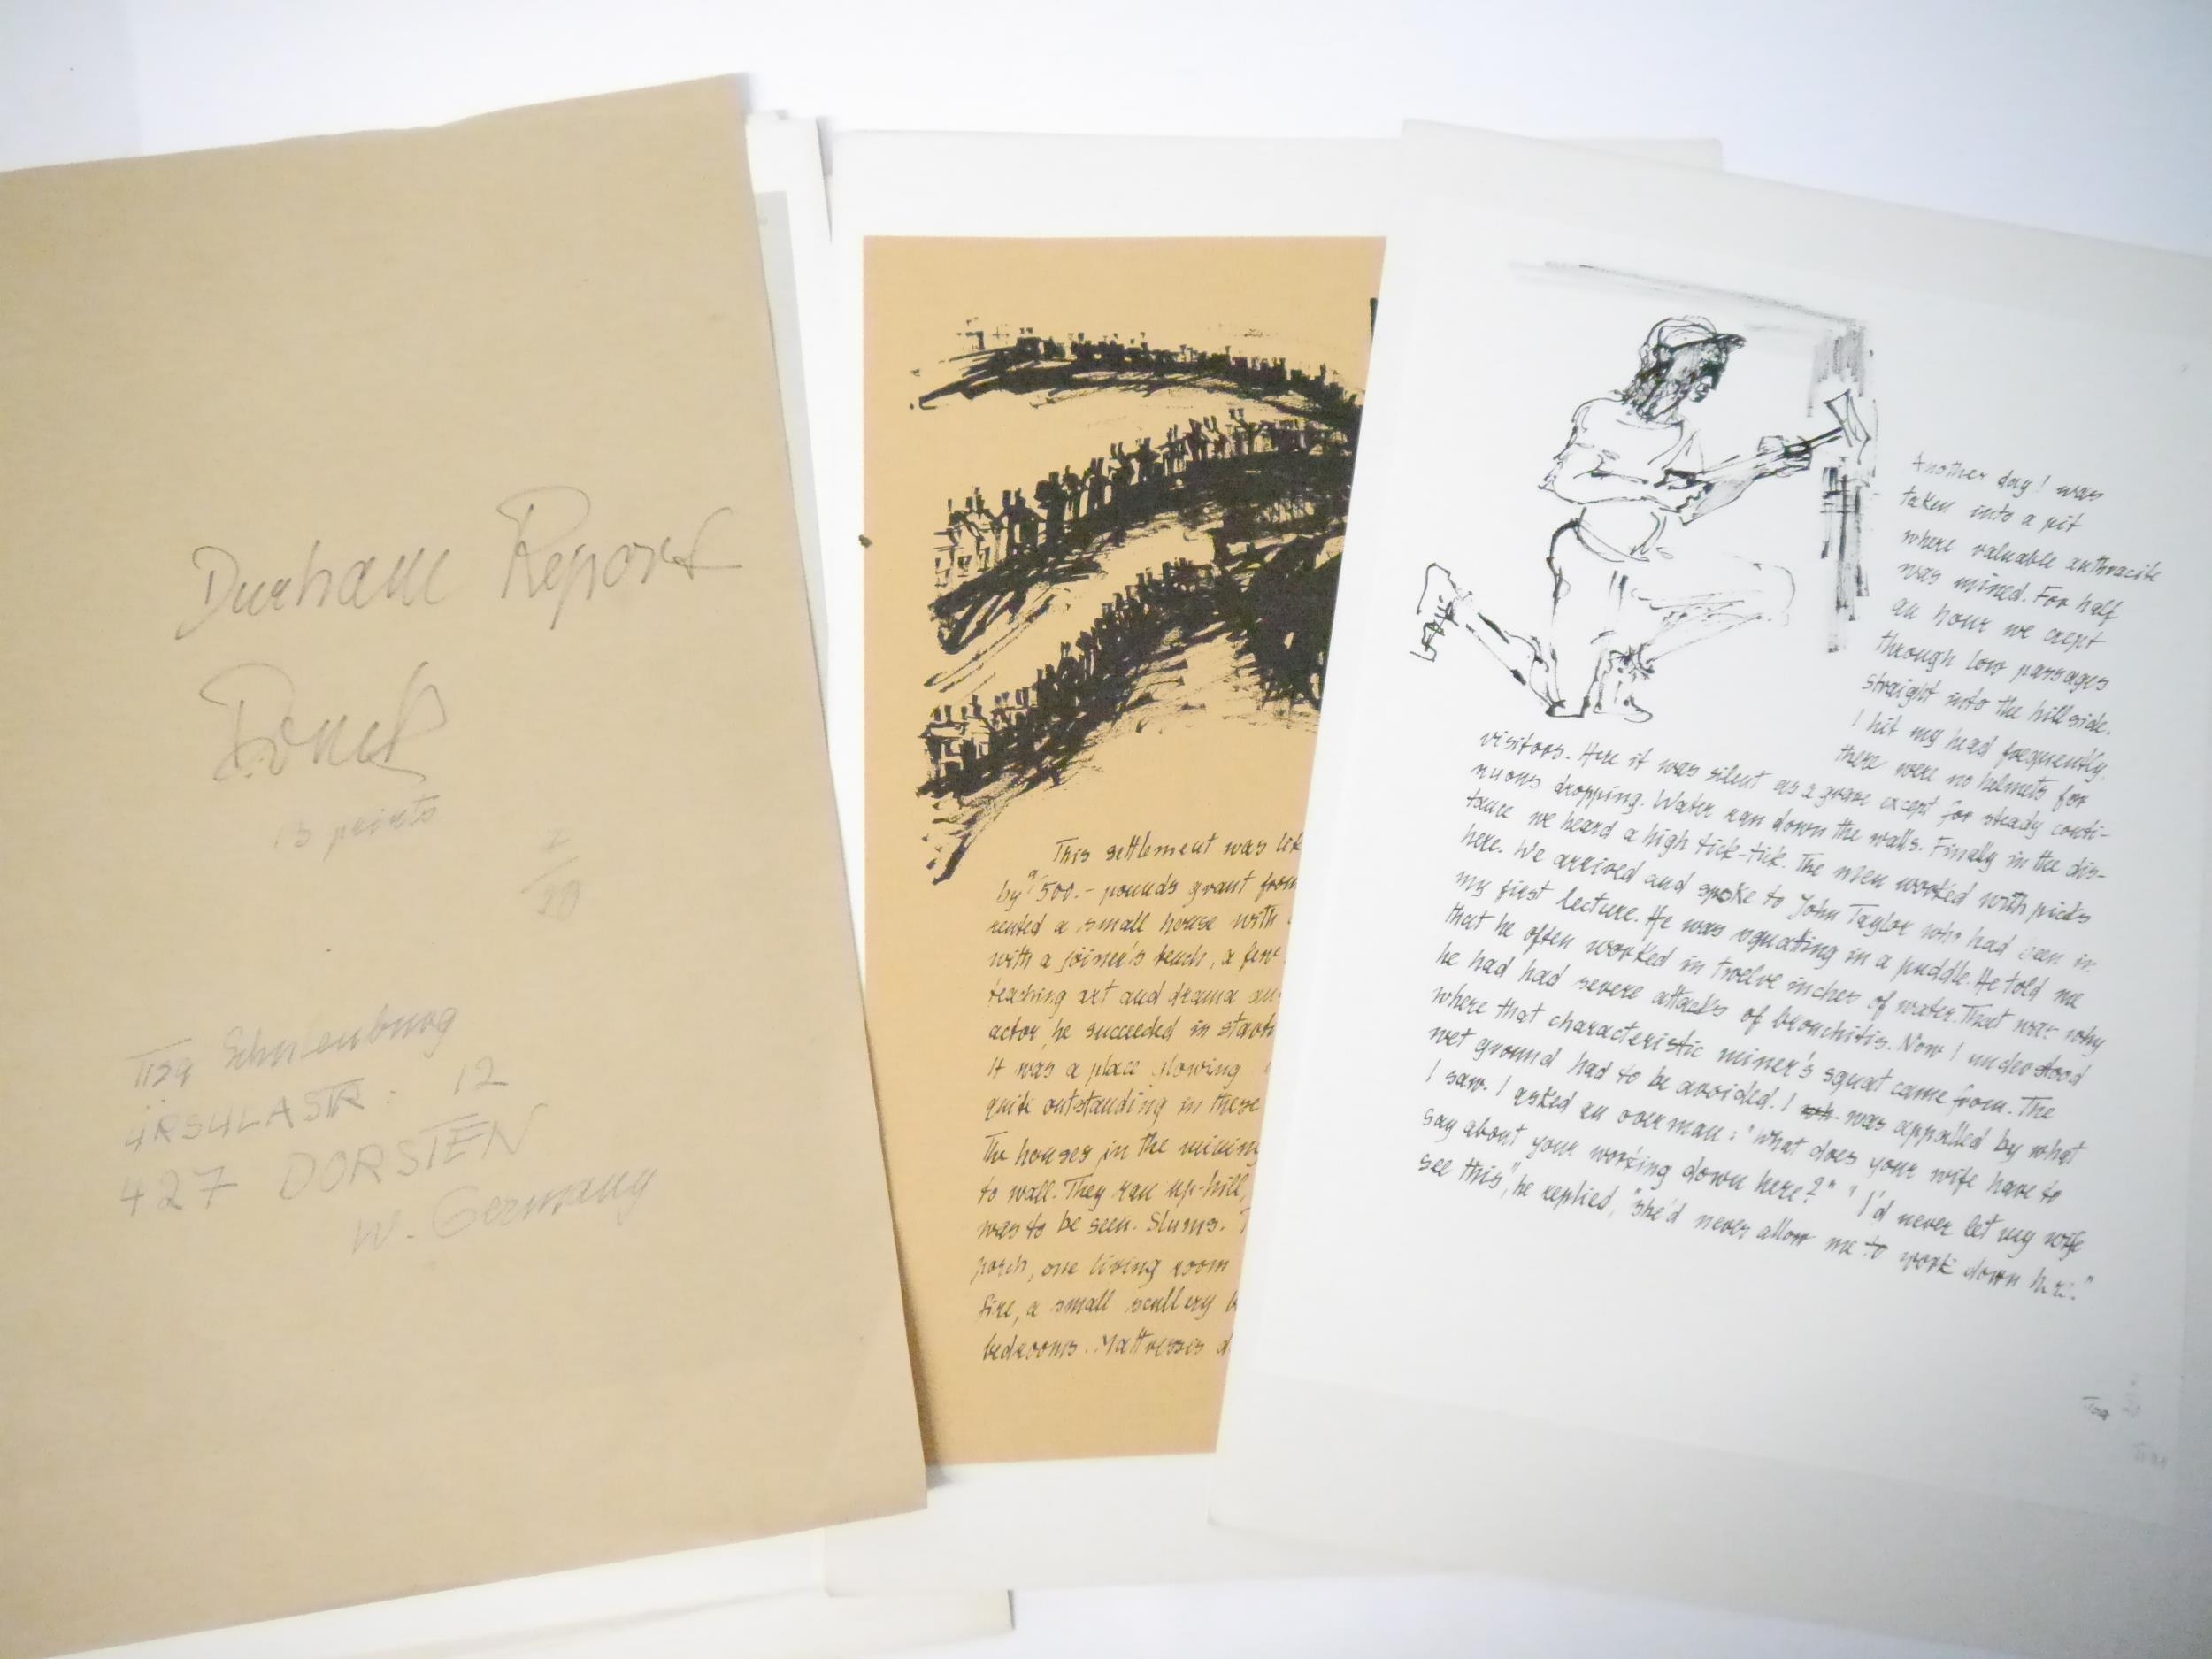 Durham Report
13 prints
Tisa Schulenburg
URSULASTR: 12
427 DORSTEN
W. Germany
This settlement was
by 500.- pounds grant from
rented a small house with
with a joiner's bench, a few
teaching art and drama
actor, he succeeded in
It was a place glowing
quite outstanding in these
The houses in the mining
to wall. They ran up-hill,
was to be seen. Slums.
porch, one living room
fire, a small scullery
bedrooms. Mattresses
Another day I was
taken into a pit
where valuable anthracite
was mined. For half
an hour we crept
through low passages
straight into the hillside.
I hit my head frequently,
there were no helmets for
visitors. Here it was silent as a grave except for steady conti-
nuous dropping. Water ran down the walls. Finally in the dis-
tance we heard a high tick-tick. The men worked with picks
here. We arrived and spoke to John Taylor who had been in
my first lecture. He was squatting in a puddle. He told me
that he often worked in twelve inches of water. That was why
he had had severe attacks of bronchitis. Now I understood
where that characteristic miner's squat came from. The
wet ground had to be avoided. I was appalled by what
I saw. I asked an overman: "What does your wife have to
say about your working down here?" "I'd never let my wife
see this", he replied, "she'd never allow me to work down here."
Tisa
Tisa